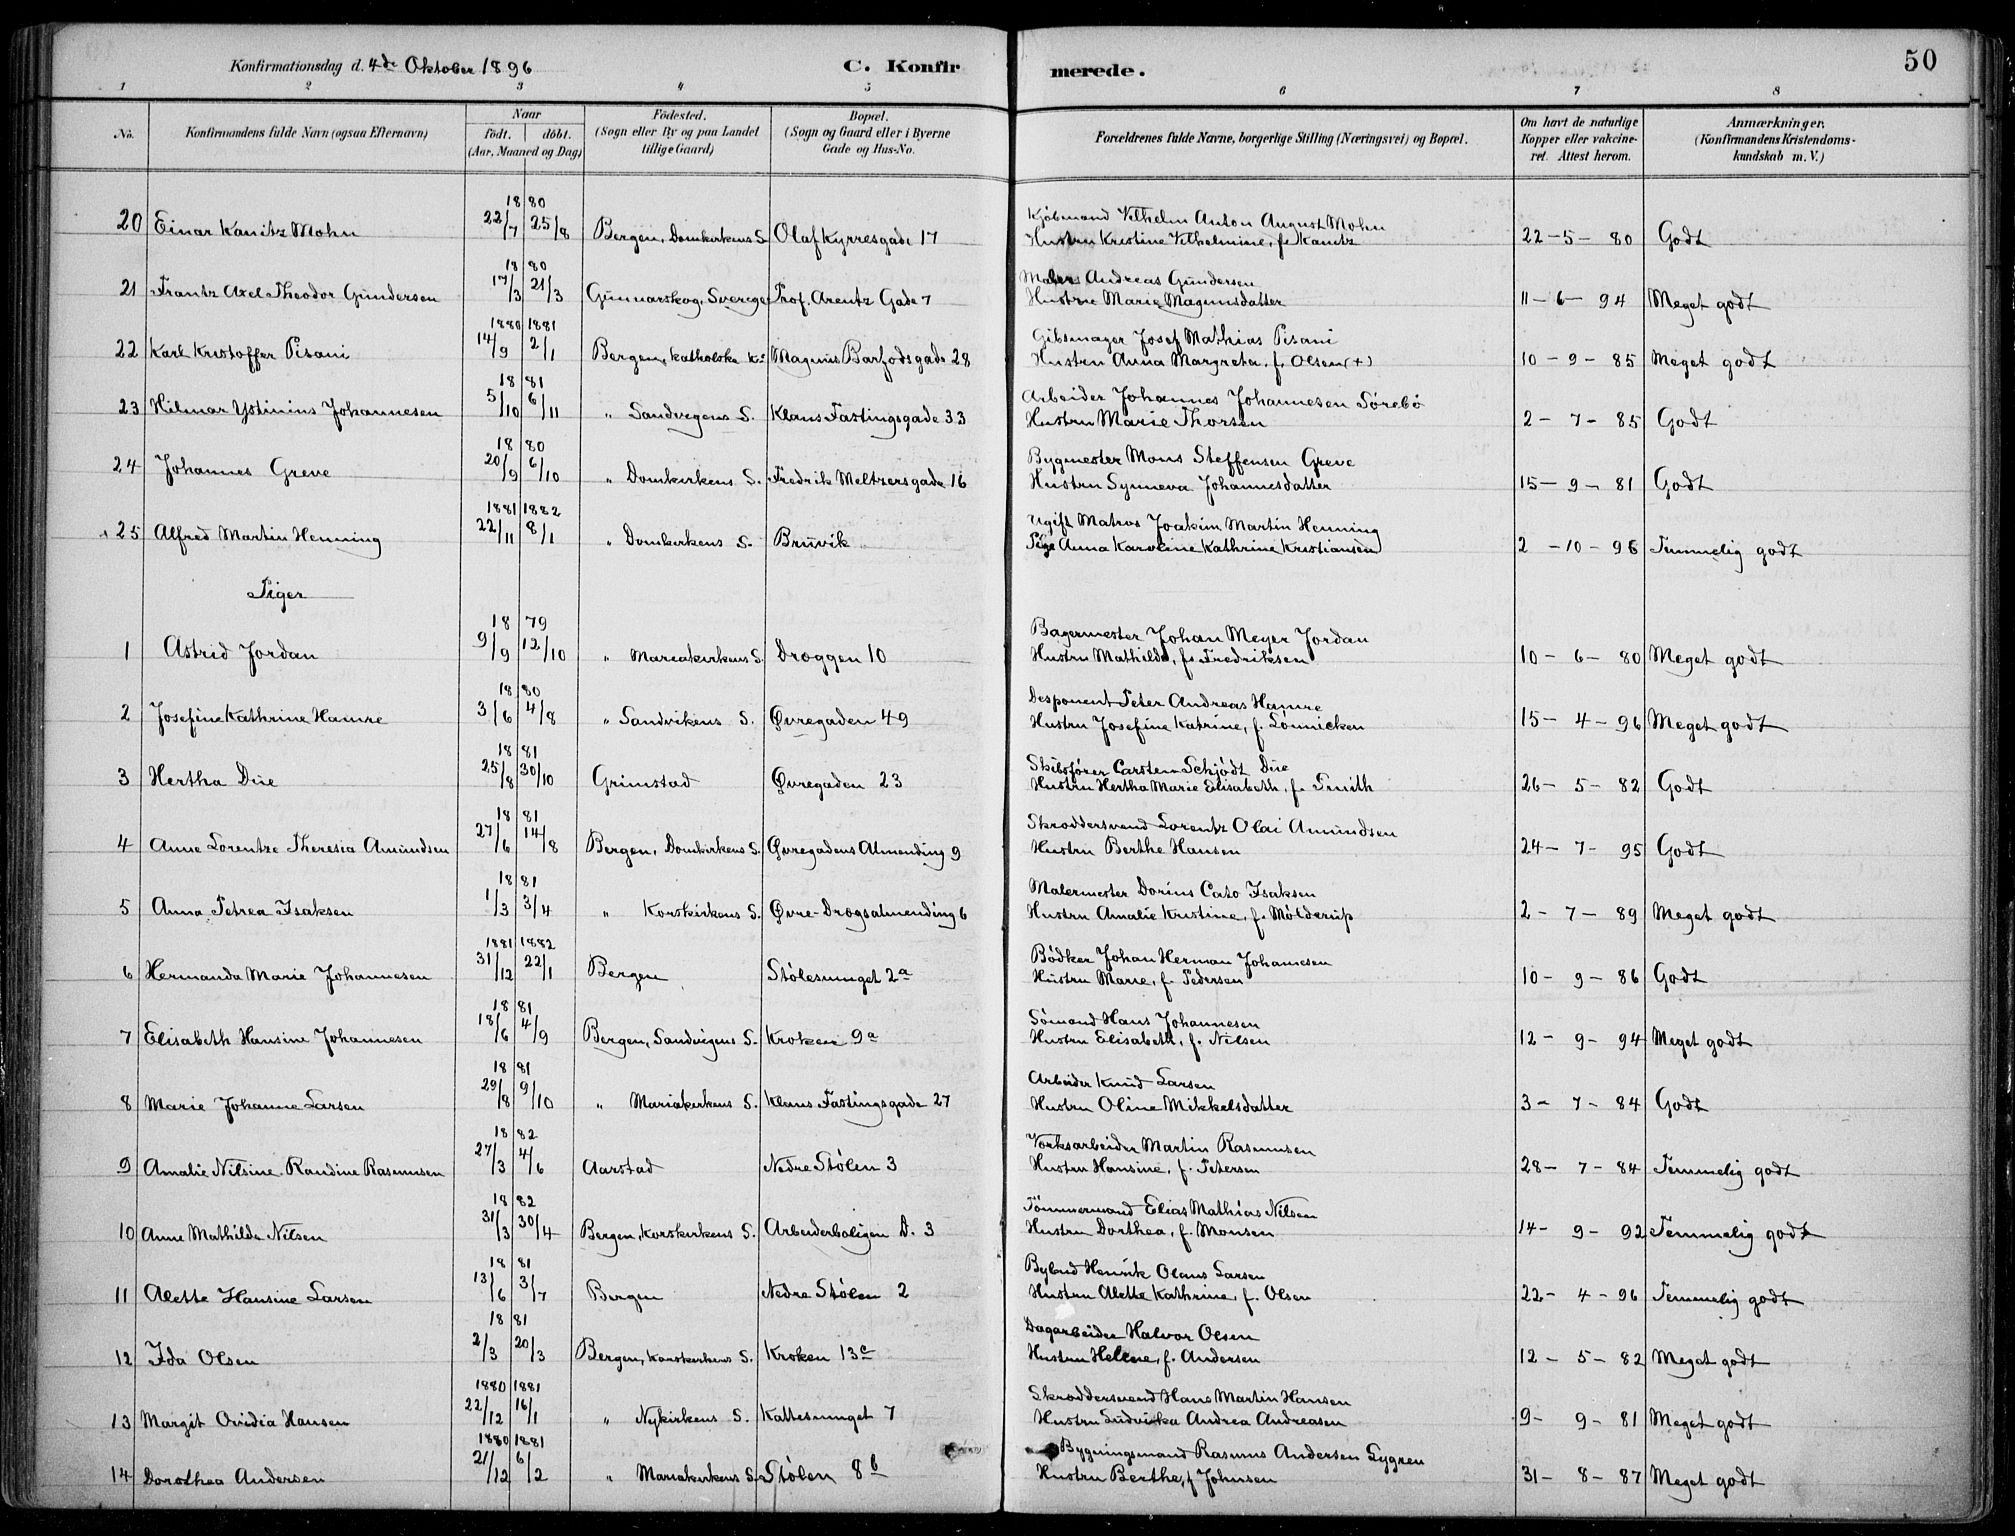 Konfirmationsdag d. 4de Oktober 1896
C. Konfirmerede.
50
1 2 3 4 5 6 7 8
No. Konfirmandens fulde Navn (ogsaa Efternavn) Naar født. døbt. (Aar, Maaned og Dag) Fødested. (Sogn eller By og paa Landet tillige Gaard) Bopæl. (Sogn og Gaard eller i Byerne Gade og Hus-No. Forældrenes fulde Navne, borgerlige Stilling (Næringsvei) og Bopæl. Om havt de naturlige Kopper eller vakcineret. Attest herom. Anmærkninger. (Konfirmandens Kristendomskundskab m. V.)
1880 Kjøbmand Vilhelm Anton August Mohn
20 Einar Kanitz Mohn 22/7 25/8 Bergen, Domkirkens S. Olaf Kyrresgade 17 Hustru Kristine Vilhelmine, f. Kanitz 22-5-80 Godt
1880 Maler Andreas Gundersen
21 Frantz Axel Theodor Gundersen 17/3 21/3 Gunnarskog, Sverige Prof. Arentz Gade 7 Hustru Marie Magnusdatter 11-6-94 Meget godt
1880 1881 Gibsmager Josef Mathias Pisani
22 Karl Kristoffer Pisani 14/9 2/1 Bergen, katholske K. Magnus Barfodsgade 28 Hustru Anna Margreta, f. Olsen (+) 10-9-85 Meget godt
1881 Arbeider Johannes Johannesen Sørebø
23 Hilmar Ystinius Johannesen 5/10 6/11 " Sandvigens S. Klaus Fastingsgade 33 Hustru Marie Thorsen 2-7-85 Godt
1880 Bygmester Mons Steffensen Greve
24 Johannes Greve 20/9 6/10 " Domkirkens S. Fredrik Meltzersgade 16 Hustru Synneva Johannesdatter 15-9-81 Godt
1881 1882 Ugift Matros Joakim Martin Henning
25 Alfred Martin Henning 22/11 8/1 " Domkirkens S. Bruvik Pige Anna Karoline Kathrine Kristiansen 2-10-96 Temmelig godt
Piger
1879 Bagermester Johan Meyer Jordan
1 Astrid Jordan 9/9 12/10 " Mariakirkens S. Dræggen 10 Hustru Mathilde, f. Fredriksen 10-6-80 Meget godt
1880 Desponent Peter Andreas Hamre
2 Josefine Kathrine Hamre 3/6 4/8 " Sandvikens S. Øvregaden 49 Hustru Josefine Katrine, f. Lønnicken 15-4-96 Meget godt
1881 Skibsfører Carsten Schjødt Due
3 Hertha Due 25/8 30/10 Grimstad Øvregaden 23 Hustru Hertha Marie Elisabeth, f. Smith 26-5-82 Godt
1881 Skræddersvend Lorentz Olai Amundsen
4 Anne Lorentze Theresia Amundsen 27/6 14/8 Bergen, Domkirkens S. Øvregadens Almending 9 Hustru Berthe Hansen 24-7-95 Godt
1881 Malermester Dorius Cato Isaksen
5 Anna Petrea Isaksen 1/3 3/4 " Korskirkens S. Øvre-Drægsalmending 6 Hustru Amalie Kristine, f. Mølderup 2-7-89 Meget godt
1881 1882 Bødker Johan Herman Johannesen
6 Hermanda Marie Johannesen 31/12 22/1 Bergen Stølesmuget 2a Hustru Marie, f. Pedersen 10-9-86 Godt
1881 Sømand Hans Johannesen
7 Elisabeth Hansine Johannesen 18/6 4/9 Bergen, Sandvigens S. Kroken 9a Hustru Elisabeth, f. Nilsen 12-9-94 Meget godt
1881 Arbeider Knud Larsen
8 Marie Johanne Larsen 29/8 9/10 " Mariakirkens S. Klaus Fastingsgade 27 Hustru Oline Mikkelsdatter 3-7-84 Godt
1882 Værksarbeider Martin Rasmusen
9 Amalie Nilsine Randine Rasmusen 27/3 4/6 Aarstad Nedre Stølen 3 Hustru Hansine, f. Petersen 28-7-84 Temmelig godt
1882 Tømmermand Elias Mathias Nilsen
10 Anne Mathilde Nilsen 31/3 30/4 Bergen, Korskirkens S. Arbeiderboligen D. 3 Hustru Dorthea, f. Monsen 14-9-92 Temmelig godt
1881 Bybud Henrik Olaus Larsen
11 Alette Hansine Larsen 13/6 3/7 Bergen Nedre Stølen 2 Hustru Alette Kathrine, f. Olsen 22-4-96 Temmelig godt
1881 Dagarbeider Halvor Olsen
12 Ida Olsen 2/3 20/3 Bergen, Korskirkens S. Kroken 13c Hustru Helene, f. Andersen 12-5-82 Meget godt
1880 1881 Skræddersvend Hans Martin Hansen
13 Margit Ovidia Hansen 22/12 16/1 " Nykirkens S. Kattesmuget 7 Hustru Ludvika Andrea Andreasen 9-9-81 Meget godt
1880 1881 Bygningsmand Rasmus Andersen Lygren
14 Dorothea Andersen 21/12 6/2 " Mariakirkens S. Stølen 8b Hustru Berthe, f. Johnsen 31-8-87 Meget godt